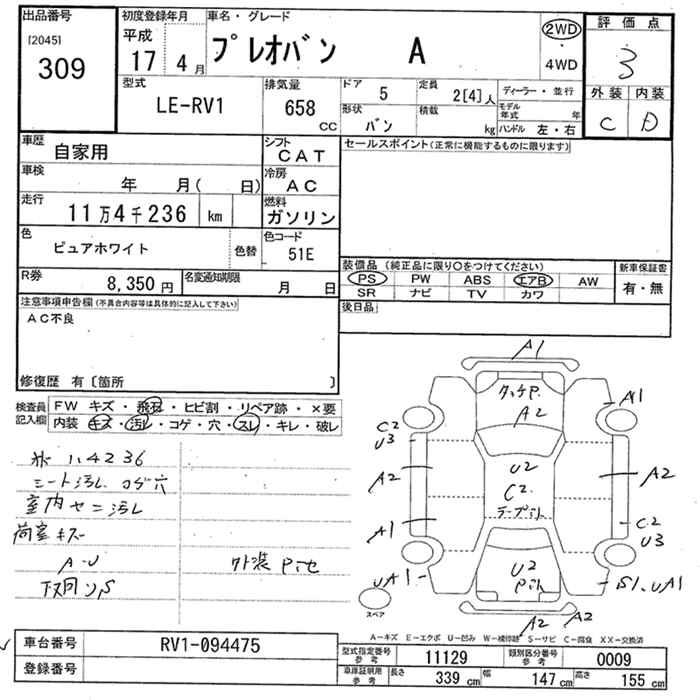 出品番号 初度登録年月 車名・グレード 評価点
[2045] 309 平成 17 4月 プレオバン A 2WD ・ 4WD 3
型式 排気量 ドア 定員 ディーラー・並行 外装 内装
LE-RV1 658 cc 5 2[4]人 モデル年式 年 C D
形状 バン 積載 kg ハンドル 左・右
車歴 自家用 シフト CAT セールスポイント(正常に機能するものに限ります)
車検 年 月( 日) 冷房 AC
走行 11万4千236 km 燃料 ガソリン
色 ピュアホワイト 色替 色コード 51E
装備品(純正品に限り○をつけてください) 新車保証書
PS PW ABS エアB AW 有・無
SR ナビ TV カワ
R券 8,350円 名変通知期限 月 日
後日品
注意事項申告欄(不具合内容等は具体的に記入して下さい)
AC不良
修復歴 有〔箇所 〕
検査員記入欄 FW キズ・飛石・ヒビ割・リペア跡・×要
内装 キズ・汚レ・コゲ・穴・スレ・キレ・破レ
114236
シート汚レ コゲ穴
室内 汚レ
荷室キズ
A・U
下廻りS
外装
A1
タッチP.
A2
A1
C2
U3
A2
U2
C2.
A2
A1
C2
U3
UA1
U2
S1.UA1
スペア
A2 A2
A-キズ E-エクボ U-凹み W-補修跡 S-サビ C-腐食 XX-交換済
車台番号 RV1-094475
登録番号
型式指定番号 参考 11129 類別区分番号 参考 0009
車庫証明用 参考 長さ 339 cm 幅 147 cm 高さ 155 cm